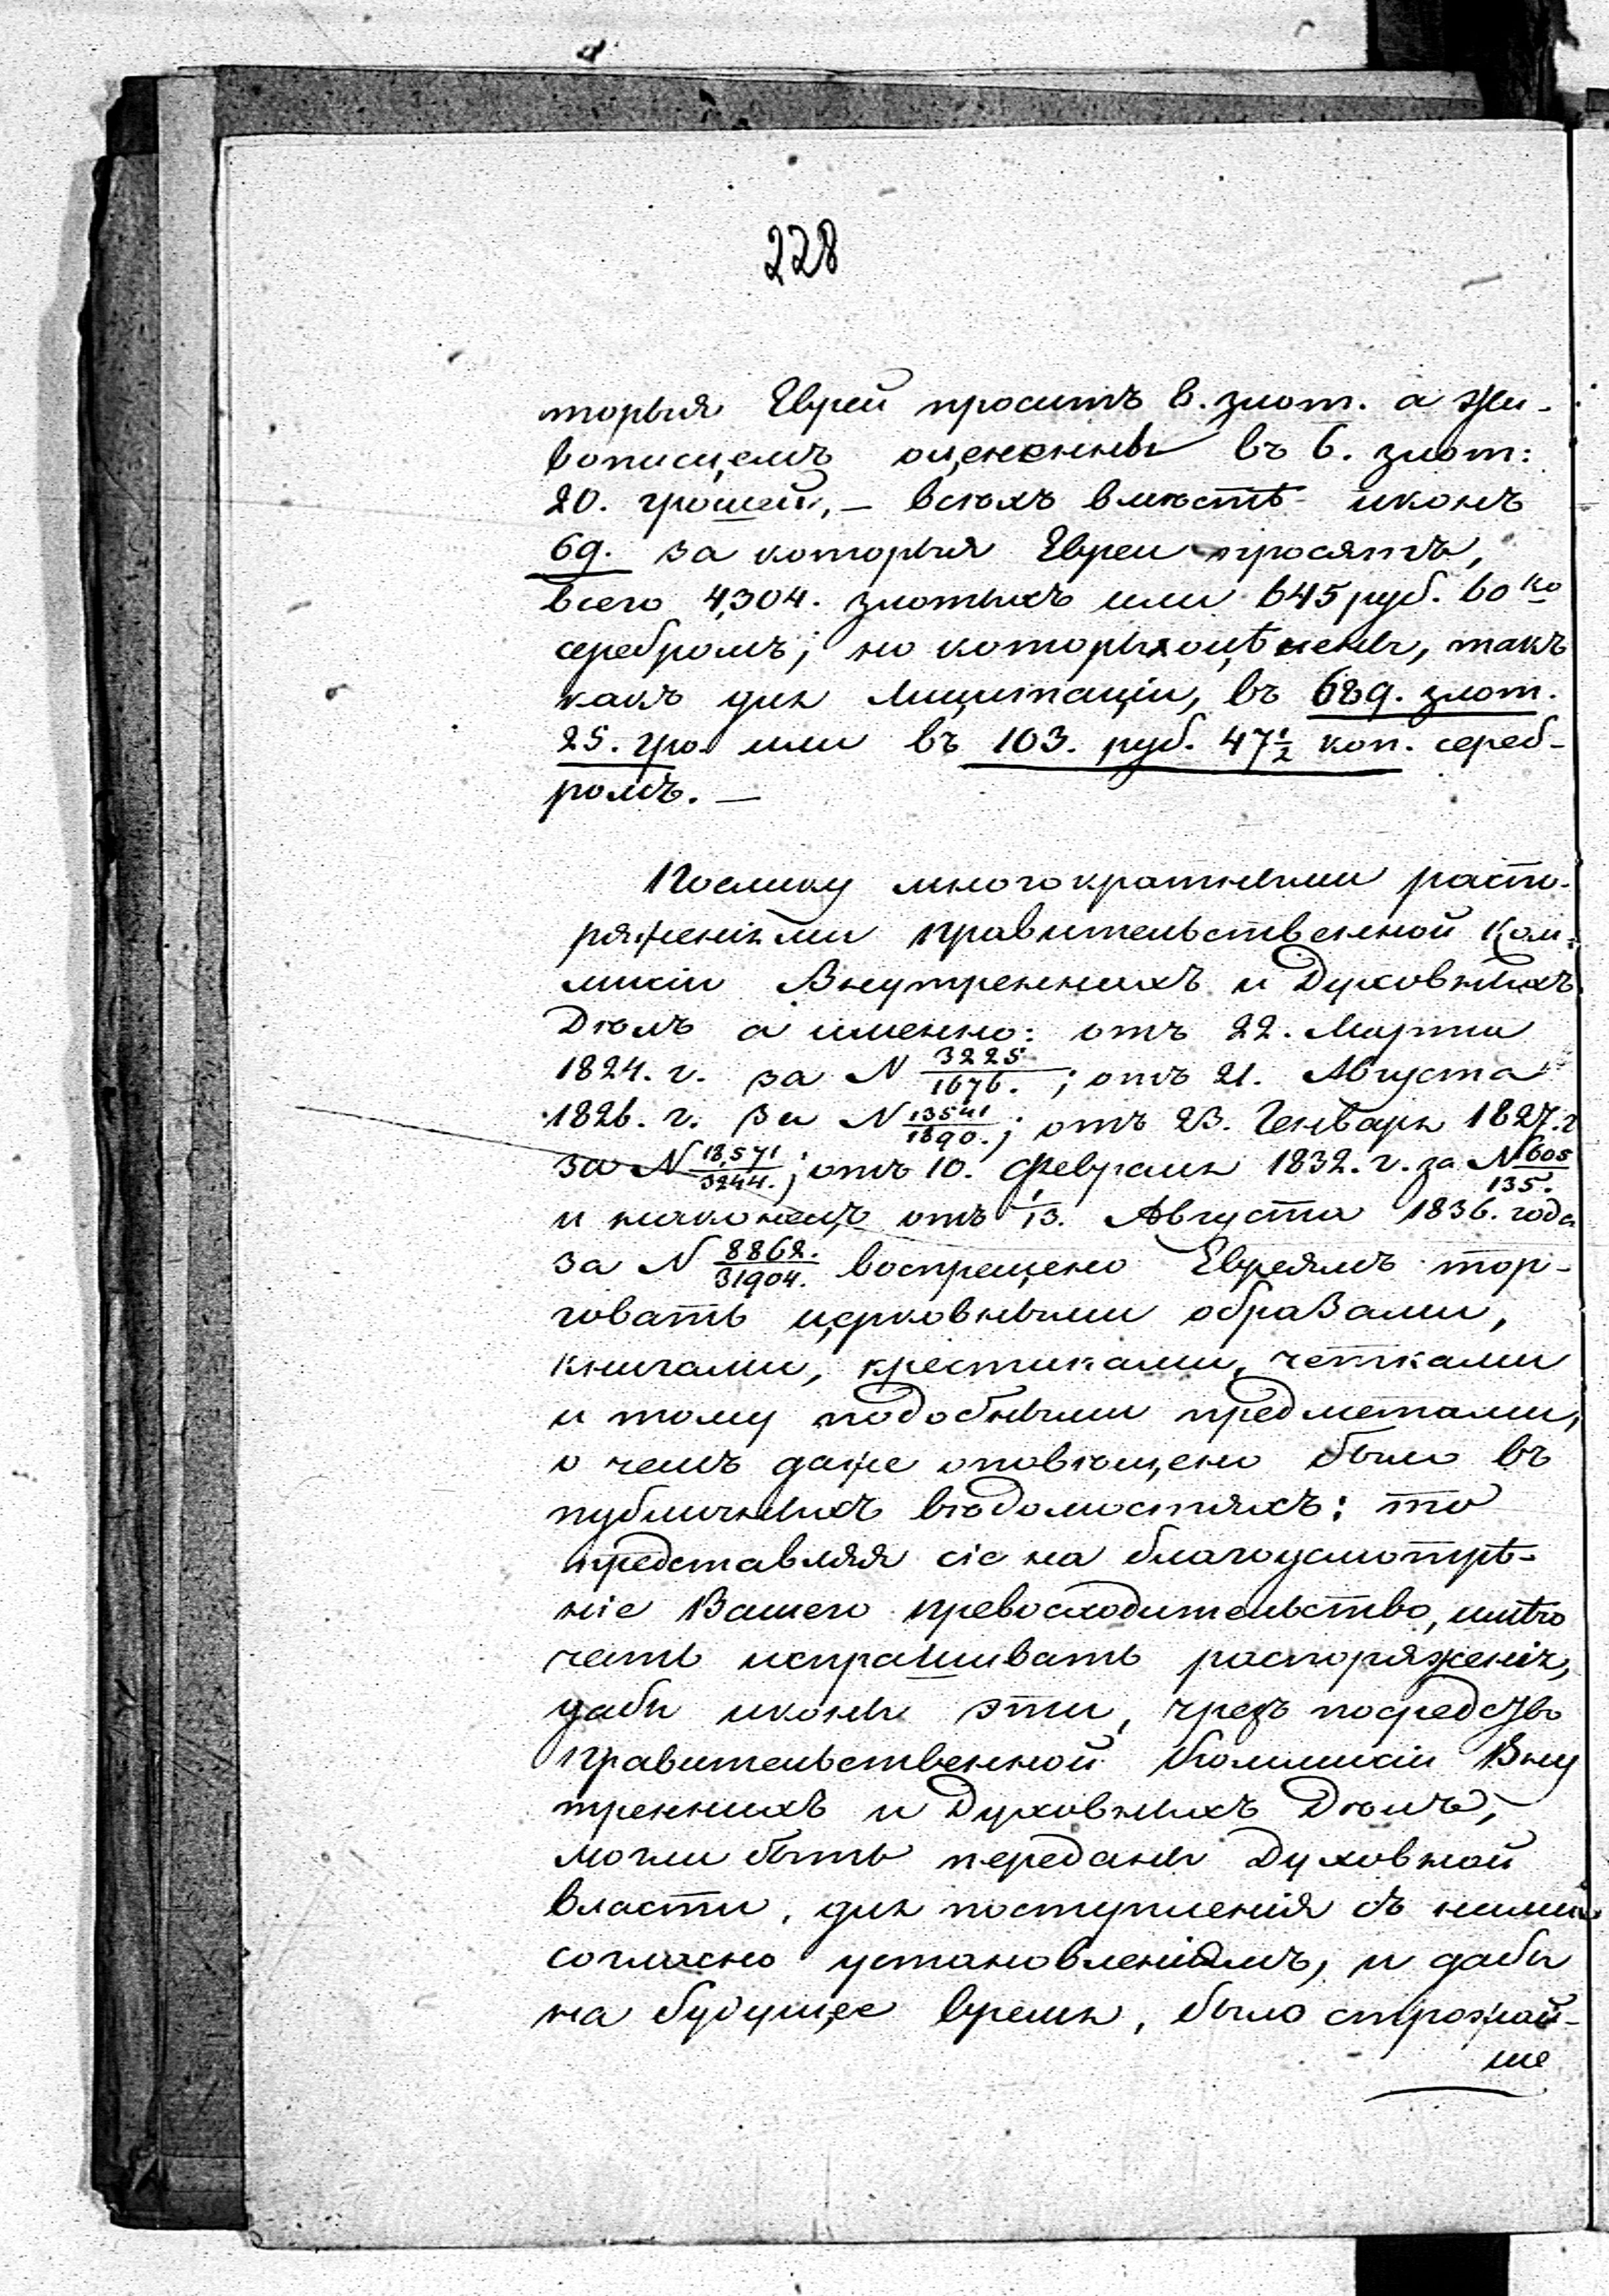 228
торыя Еврей проситъ 8. злот. а жи-
вописцемъ оцененны въ 6. злот:
20. грошей, — всѣхъ вмѣстѣ иконъ
69. за которыя Евреи просятъ,
всего 4,304. злотыхъ или 645 руб. 60 ко
серебромъ; но которыя оцѣнены, такъ
какъ для лицитаціи, въ 689. злот.
25. гро. или въ 103. руб. 47½ коп. сереб-
ромъ. —
Поелику многократными распо-
ряженіями Правительственной Ком-
мисіи Внутреннихъ и Духовныхъ
Дѣлъ а именно: отъ 22. Марта
1824. г. за N 3225/1676. ; отъ 21. Августа
1826. г. за N 13541/1890. ; отъ 23. Генваря 1827. г
за N 18,571/3244. ; отъ 10. Февраля 1832. г. за N 605/135.
и наконецъ отъ 1/13. Августа 1836. года
за N 8862./31904. воспрещено Евреямъ тор-
говать церковными образами,
книгами, крестиками, четками
и тому подобными предметами,
о чемъ даже оповѣщено было въ
публичныхъ вѣдомостяхъ: то
представляя сіе на благоусмотрѣ-
ніе Вашего Превосходительство, имѣю
честь испрашивать распоряженія,
дабы иконы эти, чрезъ посредство
Правительственной Коммисіи Вну
тренныхъ и Духовныхъ Дѣлъ,
могли быть переданы Духовной
власти, для поступленія съ ними
согласно установленіямъ, и дабы
на будущее время, было строжай-
ше